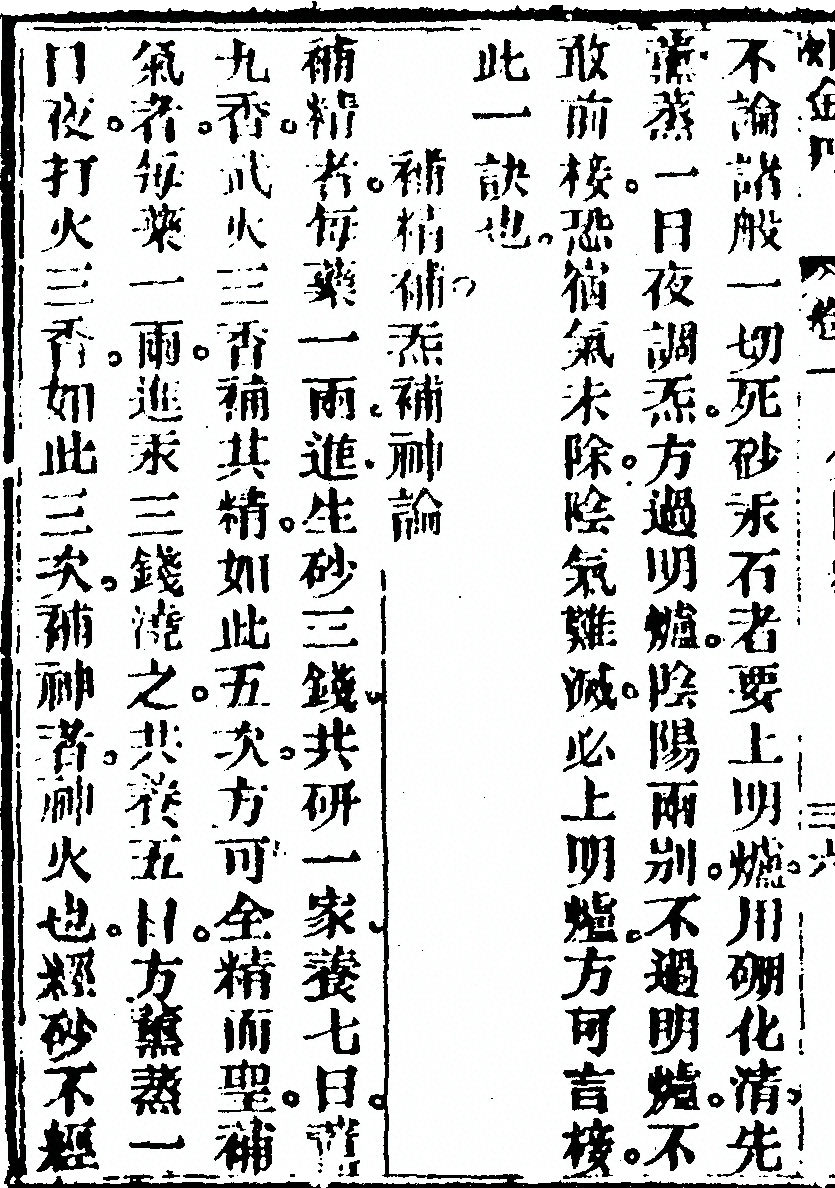 不論諸般一切死砂汞石者要上明爐用硼化清先
薰蒸一日夜調炁方過明爐陰陽兩別不過明爐不
敢前接恐猶氣未除陰氣難滅必上明爐方可言接
此一訣也
補精補炁補神論
補精者每藥一兩進生砂三錢共研一家養七日
九香武火三香補其精如此五次方可全精而聖補
氣者每藥一兩進汞三錢澆之共養五日方薰蒸一
日夜打火三香如此三次補神者神火也經砂不經